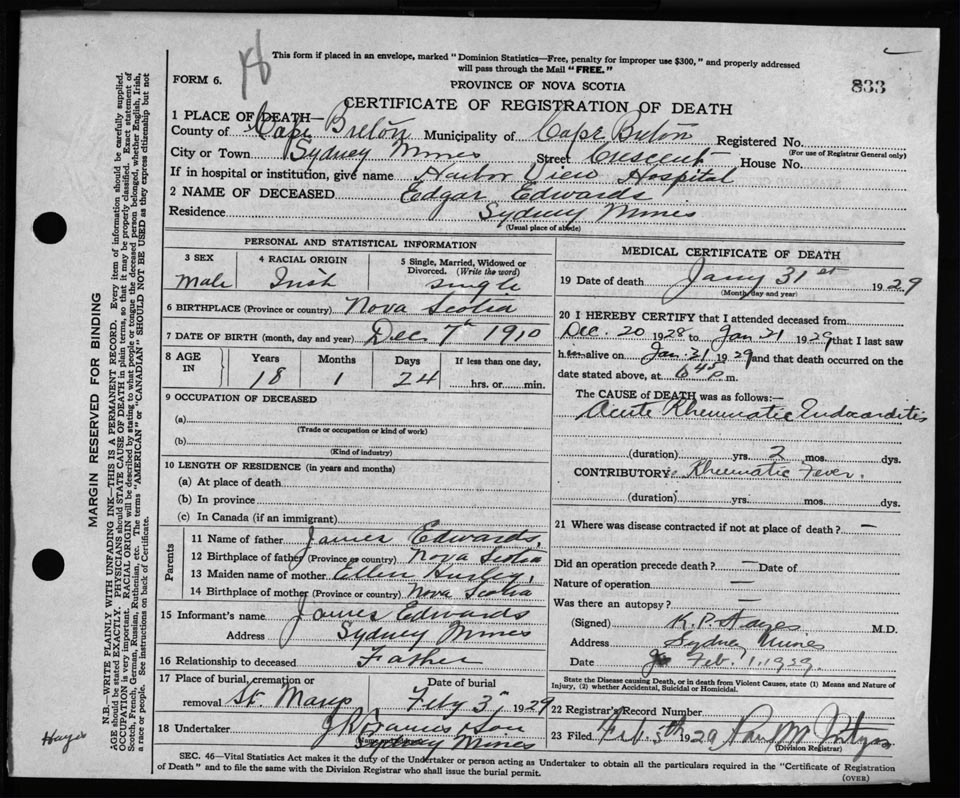 18
This form if placed in an envelope, marked "Dominion Statistics—Free, penalty for improper use $300," and properly addressed
will pass through the Mail "FREE."
FORM 6.
PROVINCE OF NOVA SCOTIA
833
CERTIFICATE OF REGISTRATION OF DEATH
1 PLACE OF DEATH—
County of Cape Breton Municipality of Cape Breton Registered No.
(For use of Registrar General only)
City or Town Sydney Mines Street Crescent House No.
If in hospital or institution, give name Harbor View Hospital
2 NAME OF DECEASED Edgar Edwards
Residence Sydney Mines
(Usual place of abode)
PERSONAL AND STATISTICAL INFORMATION
3 SEX 4 RACIAL ORIGIN 5 Single, Married, Widowed or
Divorced. (Write the word)
Male Irish single
6 BIRTHPLACE (Province or country) Nova Scotia
7 DATE OF BIRTH (month, day and year) Dec 7th 1910
8 AGE IN Years Months Days If less than one day,
18 1 24 hrs. or min.
9 OCCUPATION OF DECEASED
(a)
(Trade or occupation or kind of work)
(b)
(Kind of industry)
10 LENGTH OF RESIDENCE (in years and months)
(a) At place of death
(b) In province
(c) In Canada (if an immigrant)
Parents
11 Name of father James Edwards,
12 Birthplace of father (Province or country) Nova Scotia
13 Maiden name of mother Ellen Hurley,
14 Birthplace of mother (Province or country) Nova Scotia
15 Informant's name James Edwards
Address Sydney Mines
16 Relationship to deceased Father
17 Place of burial, cremation or Date of burial
removal St. Marys Feby 3rd 1929
18 Undertaker & Son
Sydney Mines
MEDICAL CERTIFICATE OF DEATH
19 Date of death Jany 31st 1929
(Month, day and year)
20 I HEREBY CERTIFY that I attended deceased from
Dec. 20 1928 to Jan 31 1929 that I last saw
him alive on Jan. 31 1929 and that death occurred on the
date stated above, at 6 45 p. m.
The CAUSE of DEATH was as follows:—
Acute Rheumatic Endocarditis
(duration) yrs. 2 mos. dys.
CONTRIBUTORY: Rheumatic Fever.
(duration) yrs. mos. dys.
21 Where was disease contracted if not at place of death? —
Did an operation precede death? — Date of
Nature of operation —
Was there an autopsy? —
(Signed) K. P. Hayes M.D.
Address Sydney Mines
Date Feb. 1, 1929.
State the Disease causing Death, or in death from Violent Causes, state (1) Means and Nature of
Injury, (2) whether Accidental, Suicidal or Homicidal.
22 Registrar's Record Number
23 Filed Feb. 5th 1929
(Division Registrar)
SEC. 46—Vital Statistics Act makes it the duty of the Undertaker or person acting as Undertaker to obtain all the particulars required in the "Certificate of Registration
of Death" and to file the same with the Division Registrar who shall issue the burial permit.
(OVER)
MARGIN RESERVED FOR BINDING
N.B.—WRITE PLAINLY WITH UNFADING INK—THIS IS A PERMANENT RECORD. Every item of information should be carefully supplied.
AGE should be stated EXACTLY. PHYSICIANS should STATE CAUSE OF DEATH in plain terms, so that it may be properly classified. Exact statement of
OCCUPATION is very important. RACIAL ORIGIN will be described by stating to what people or tongue the deceased person belonged, whether English, Irish,
Scotch, French, German, Russian, Ruthenian, etc. The terms "AMERICAN" or "CANADIAN" SHOULD NOT BE USED as they express citizenship but not
a race or people. See instructions on back of Certificate.
Hayes